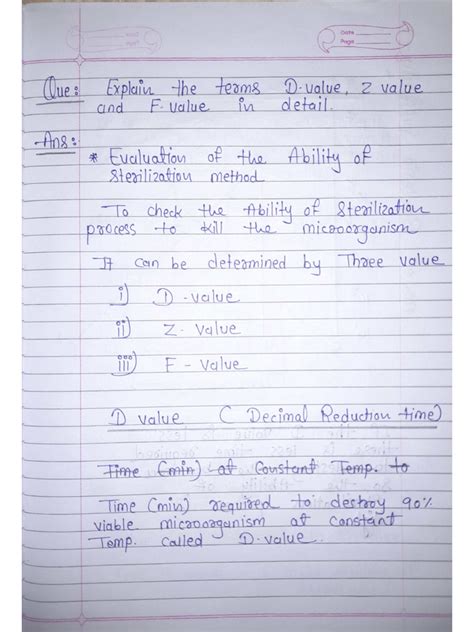 Date
Page
Que: Explain the terms D-value, Z value
and F-value in detail.
Ans:
* Evaluation of the Ability of
Sterilization method
To check the Ability of Sterilization
process to kill the microorganism
It can be determined by Three value
i) D-value
ii) Z-value
iii) F-value
D value (Decimal Reduction time)
Time (min) at Constant Temp. to
Time (min) required to destroy 90%
viable microorganism at constant
Temp. called D-value.